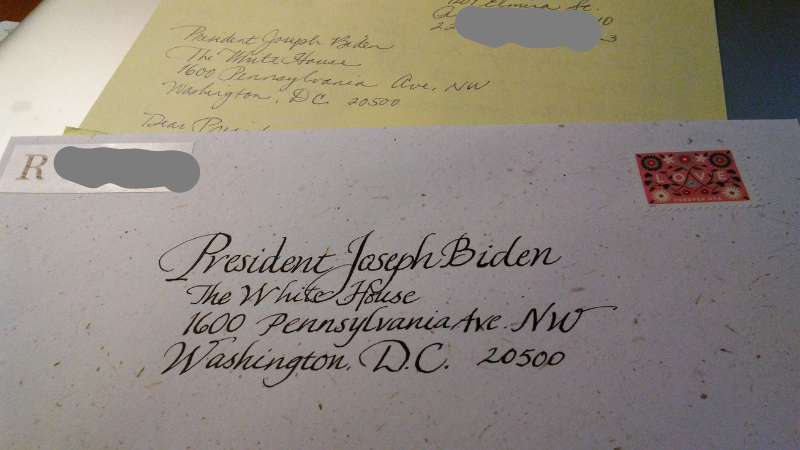 Elmira St.
President Joseph Biden
The White House
1600 Pennsylvania Ave, NW
Washington, DC 20500
Dear
R
LOVE
FOREVER USA
President Joseph Biden
The White House
1600 Pennsylvania Ave. NW
Washington, D.C. 20500